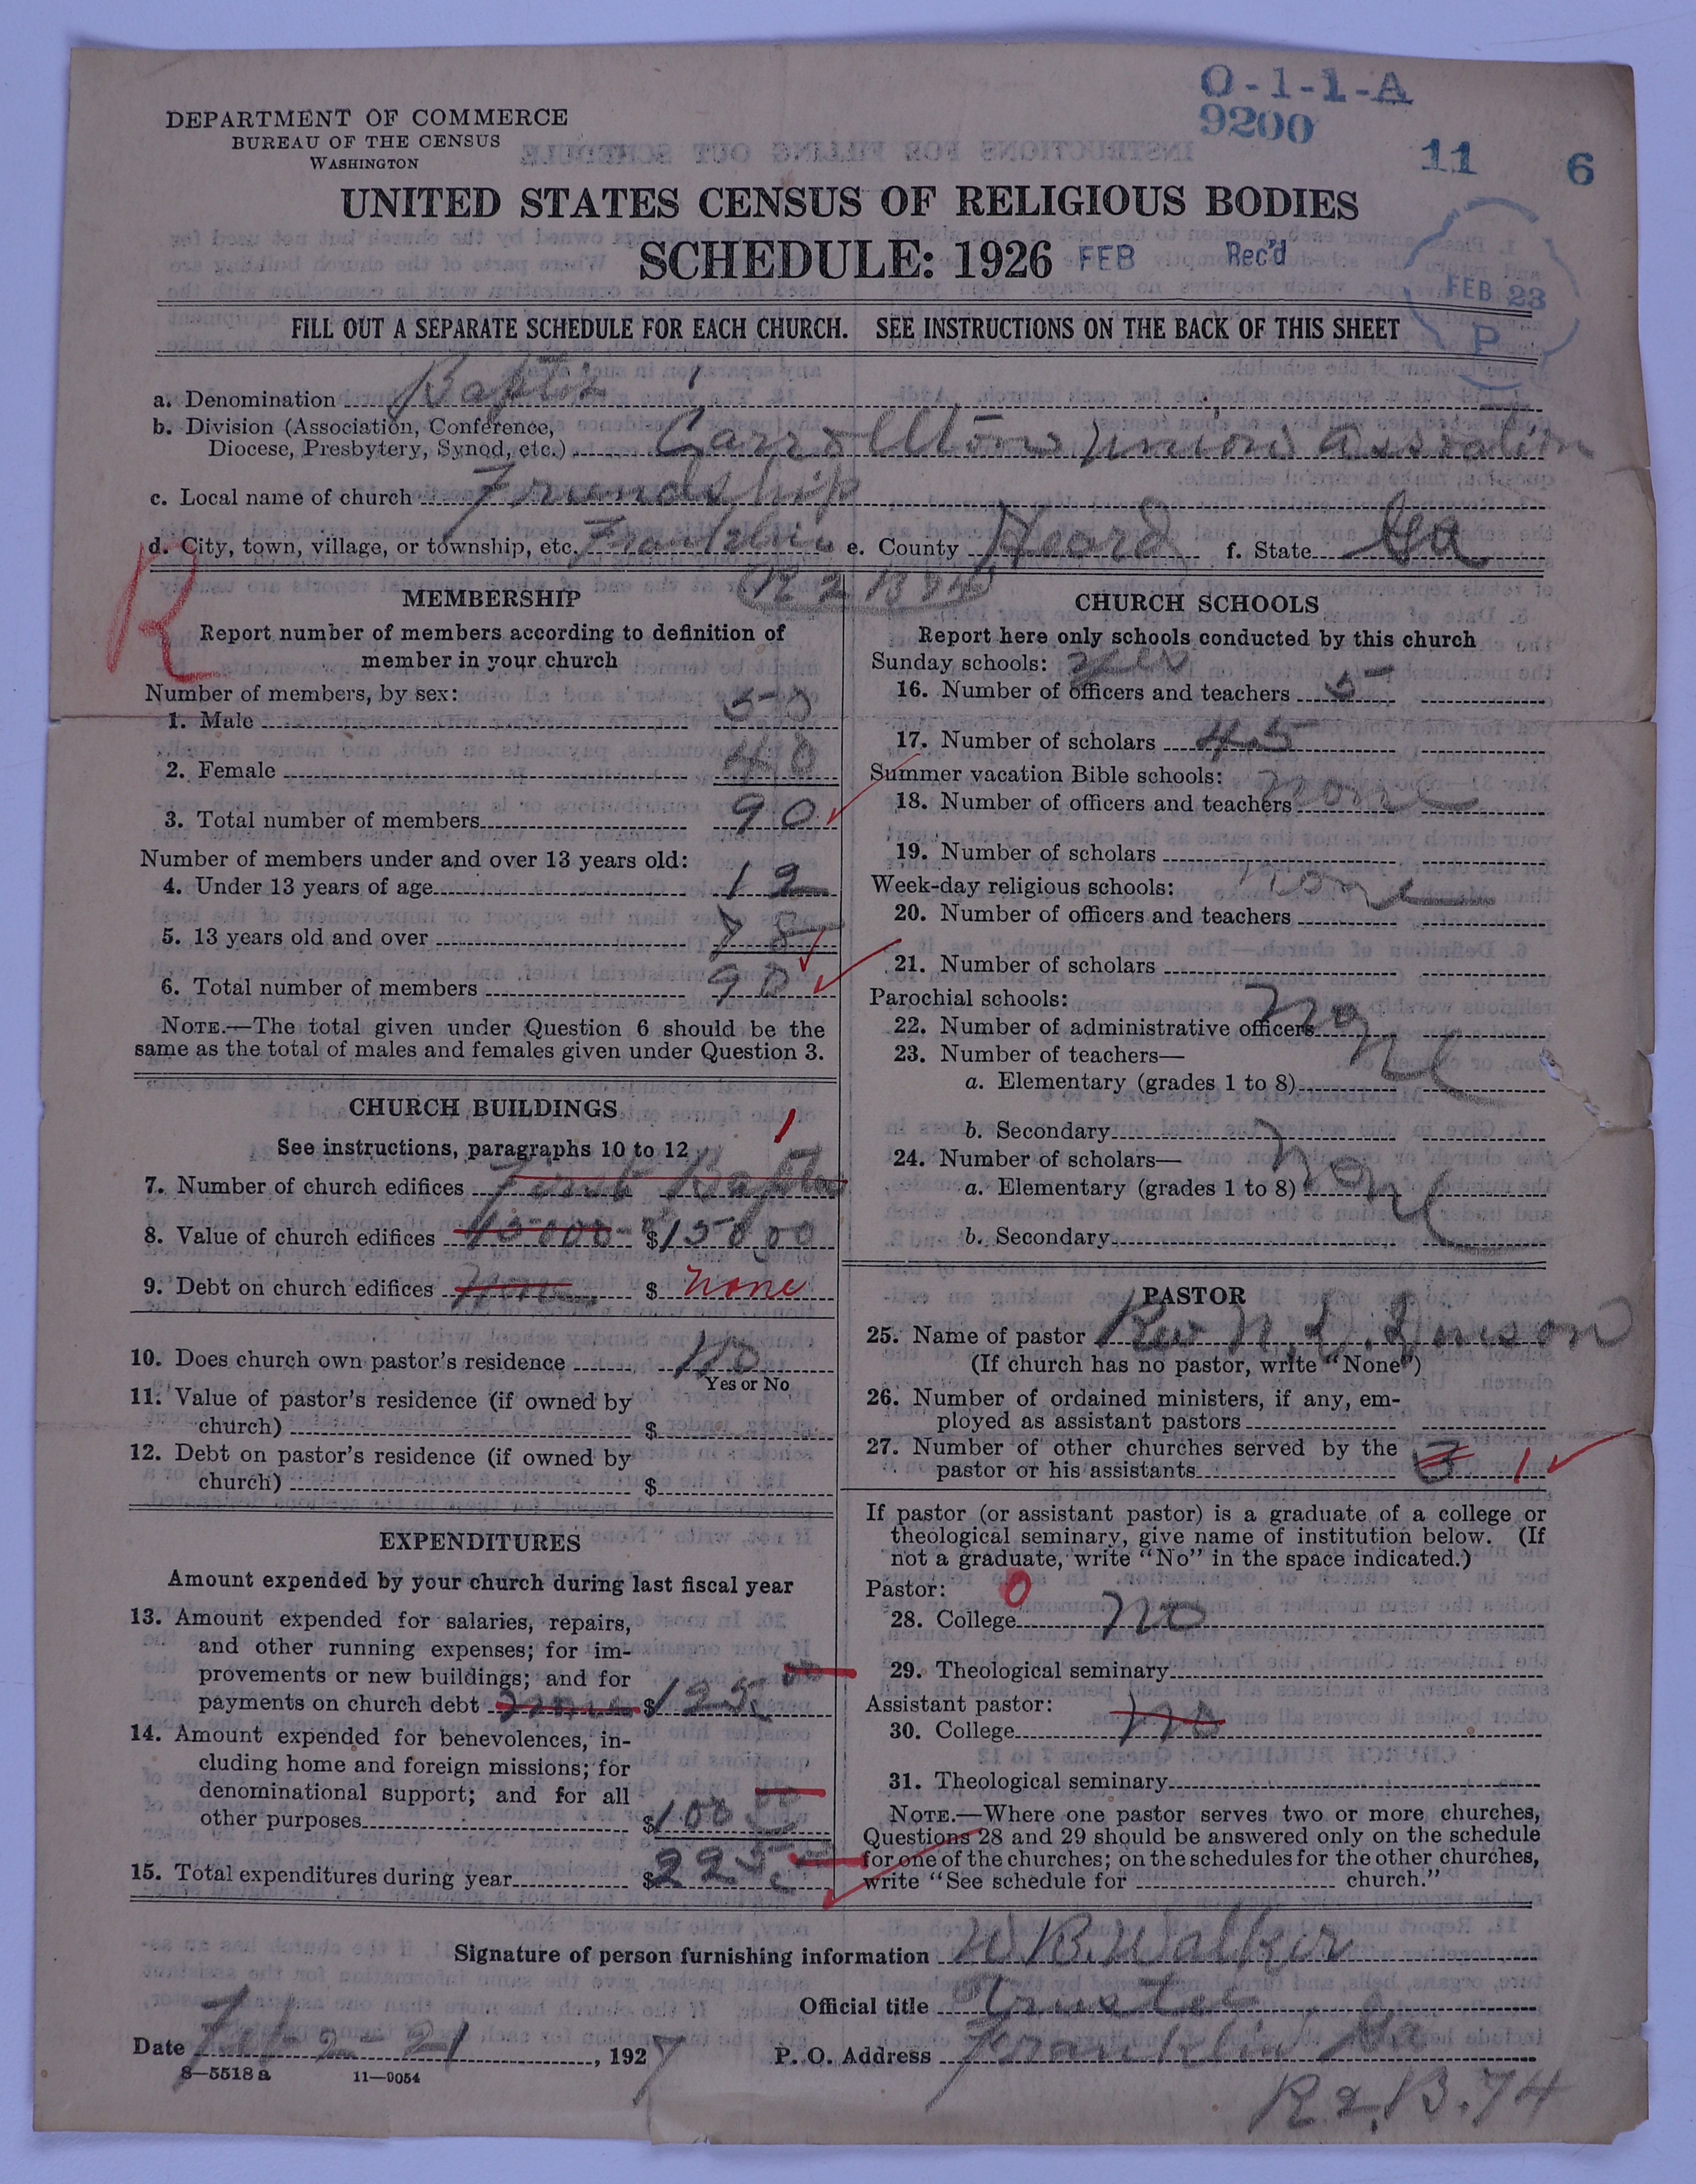 O-1-1-A
9200
11 6
DEPARTMENT OF COMMERCE
BUREAU OF THE CENSUS
WASHINGTON
UNITED STATES CENSUS OF RELIGIOUS BODIES
SCHEDULE: 1926 FEB Rec'd
FEB 23
P
FILL OUT A SEPARATE SCHEDULE FOR EACH CHURCH. SEE INSTRUCTIONS ON THE BACK OF THIS SHEET
a. Denomination
b. Division (Association, Conference,
Diocese, Presbytery, Synod, etc.) Carrollton union
c. Local name of church Friendship
d. City, town, village, or township, etc. Franklin e. County Heard f. State Ga
R
MEMBERSHIP
Report number of members according to definition of
member in your church
Number of members, by sex:
1. Male 50
2. Female 40
3. Total number of members 90
Number of members under and over 13 years old:
4. Under 13 years of age 12
5. 13 years old and over 78
6. Total number of members 90
NOTE.—The total given under Question 6 should be the
same as the total of males and females given under Question 3.
CHURCH BUILDINGS
See instructions, paragraphs 10 to 12
1
7. Number of church edifices First
8. Value of church edifices $1500 00
9. Debt on church edifices none $ none
10. Does church own pastor's residence No
Yes or No
11. Value of pastor's residence (if owned by
church) $
12. Debt on pastor's residence (if owned by
church) $
EXPENDITURES
Amount expended by your church during last fiscal year
13. Amount expended for salaries, repairs,
and other running expenses; for im-
provements or new buildings; and for
payments on church debt $125
14. Amount expended for benevolences, in-
cluding home and foreign missions; for
denominational support; and for all
other purposes $100
15. Total expenditures during year $225
CHURCH SCHOOLS
Report here only schools conducted by this church
Sunday schools: yes
16. Number of officers and teachers 5
17. Number of scholars 45
Summer vacation Bible schools:
18. Number of officers and teachers none
19. Number of scholars
Week-day religious schools: none
20. Number of officers and teachers
21. Number of scholars
Parochial schools:
22. Number of administrative officers none
23. Number of teachers—
a. Elementary (grades 1 to 8)
b. Secondary
24. Number of scholars— none
a. Elementary (grades 1 to 8)
b. Secondary
PASTOR
25. Name of pastor Rev
(If church has no pastor, write "None")
26. Number of ordained ministers, if any, em-
ployed as assistant pastors
27. Number of other churches served by the
pastor or his assistants 3 1
If pastor (or assistant pastor) is a graduate of a college or
theological seminary, give name of institution below. (If
not a graduate, write "No" in the space indicated.)
Pastor: 0
28. College no
29. Theological seminary
Assistant pastor:
30. College no
31. Theological seminary
NOTE.—Where one pastor serves two or more churches,
Questions 28 and 29 should be answered only on the schedule
for one of the churches; on the schedules for the other churches,
write "See schedule for church."
Signature of person furnishing information W B. Walker
Official title Trustee
Date Feb 2-21, 1927 P. O. Address Franklin Ga
R 2, B. 74
8—5518 a 11—9054